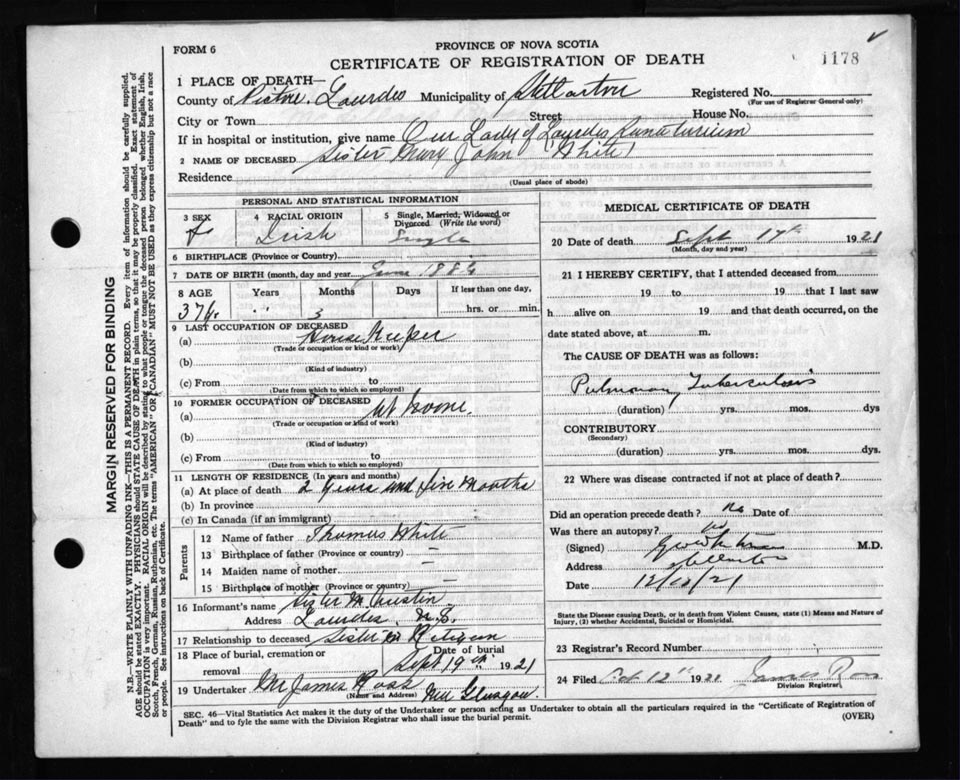 FORM 6
PROVINCE OF NOVA SCOTIA
CERTIFICATE OF REGISTRATION OF DEATH
1178
1 PLACE OF DEATH—
County of Pictou. Lourdes Municipality of Stellarton
Registered No.
(For use of Registrar General only)
City or Town Street House No.
If in hospital or institution, give name Our Lady of Lourdes
2 NAME OF DECEASED Sister Mary John (White)
Residence
(Usual place of abode)
PERSONAL AND STATISTICAL INFORMATION
3 SEX
4 RACIAL ORIGIN
Irish
5 Single, Married, Widowed or Divorced. (Write the word)
Single
6 BIRTHPLACE (Province or Country)
7 DATE OF BIRTH (month, day and year June 188
8 AGE Years Months Days If less than one day,
37 3 hrs. or min.
9 LAST OCCUPATION OF DECEASED
(a) House Keeper
(Trade or occupation or kind or work)
(b)
(Kind of industry)
(c) From to
(Date from which to which so employed)
10 FORMER OCCUPATION OF DECEASED
(a) At home.
(Trade or occupation or kind of work)
(b)
(Kind of industry)
(c) From to
(Date from which to which so employed)
11 LENGTH OF RESIDENCE (In years and months)
(a) At place of death 2 Years and five Months
(b) In province
(c) In Canada (if an immigrant)
Parents
12 Name of father Thomas White
13 Birthplace of father (Province or country) –
14 Maiden name of mother –
15 Birthplace of mother (Province or country) –
16 Informant's name Sister M Austin
Address Lourdes N.S.
17 Relationship to deceased Sister in Religion
18 Place of burial, cremation or removal
Date of burial
Sept 19th 1921
19 Undertaker Mr James New Glasgow
(Name and Address)
MEDICAL CERTIFICATE OF DEATH
20 Date of death Sept 17th 1921
(Month, day and year)
21 I HEREBY CERTIFY, that I attended deceased from
19 to 19 that I last saw
h alive on 19 and that death occurred, on the
date stated above, at m.
The CAUSE OF DEATH was as follows:
Pulmonary Tuberculosis
(duration) yrs. mos. dys
CONTRIBUTORY
(Secondary)
(duration) yrs. mos. dys.
22 Where was disease contracted if not at place of death?
Did an operation precede death? No Date of
Was there an autopsy? No
(Signed) M.D.
Address Stellarton
Date 12/10/21
State the Disease causing Death, or in death from Violent Causes, state (1) Means and Nature of Injury, (2) whether Accidental, Suicidal or Homicidal.
23 Registrar's Record Number
24 Filed Oct 12th 1921 James
Division Registrar
SEC. 46—Vital Statistics Act makes it the duty of the Undertaker or person acting as Undertaker to obtain all the particulars required in the "Certificate of Registration of
Death" and to fyle the same with the Division Registrar who shall issue the burial permit.
(OVER)
MARGIN RESERVED FOR BINDING
N.B.—WRITE PLAINLY WITH UNFADING INK—THIS IS A PERMANENT RECORD. Every item of information should be carefully supplied.
AGE should be stated EXACTLY. PHYSICIANS should STATE CAUSE OF DEATH in plain terms, so that it may be properly classified. Exact statement of
OCCUPATION is very important. RACIAL ORIGIN will be described by stating to what people or tongue the deceased person belonged whether English, Irish,
Scotch, French, German, Russian, Ruthenian, etc. The terms "AMERICAN" OR "CANADIAN" MUST NOT BE USED as they express citizenship but not a race
or people. See instructions on back of Certificate.